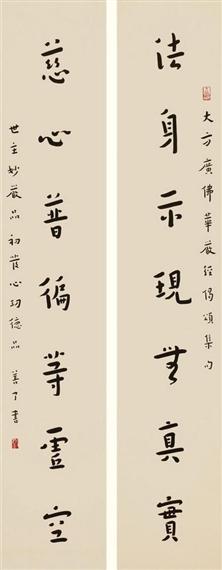 大方廣佛華嚴經偈頌集句
法身示現無真實
慈心普徧等虛空
世主妙嚴品 初發心功德品 善了書